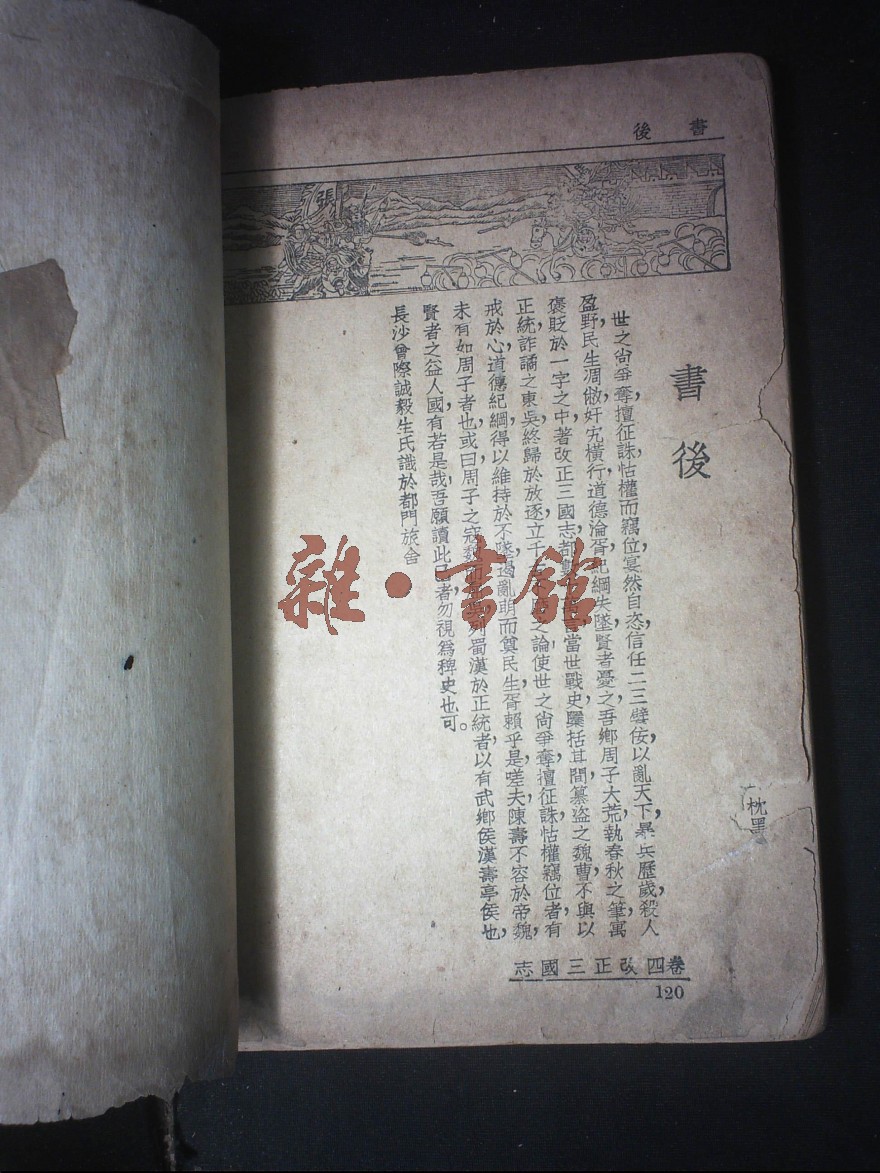 書後
張
書後
世之尙爭奪，擅征誅，怙權而竊位，宴然自恣，信任二三嬖佞，以亂天下，暴兵歷歲，殺人
盈野，民生凋敝，奸宄橫行，道德淪胥，紀綱失墜，賢者憂之，吾鄉周子大荒，執春秋之筆，寓
褒貶於一字之中，著改正三國志，都數當世戰史，檃括其間，纂盜之魏曹，不與以
正統，詐譎之東吳，終歸於放逐，立千之論，使世之尙爭奪，擅征誅，怙權竊位者，有
戒於心，道德紀綱，得以維持於不墜，遏亂萌而奠民生，胥賴乎是，嗟夫，陳壽不容於帝魏，
未有如周子者也，或曰周子之寇魏而列蜀漢於正統者，以有武鄉侯漢壽亭侯也，
賢者之益人國，有若是哉，吾願讀此者，勿視爲稗史也可。
長沙曾際誠毅生氏識於都門旅舍
雜·書館
枕
卷四改正三國志
120